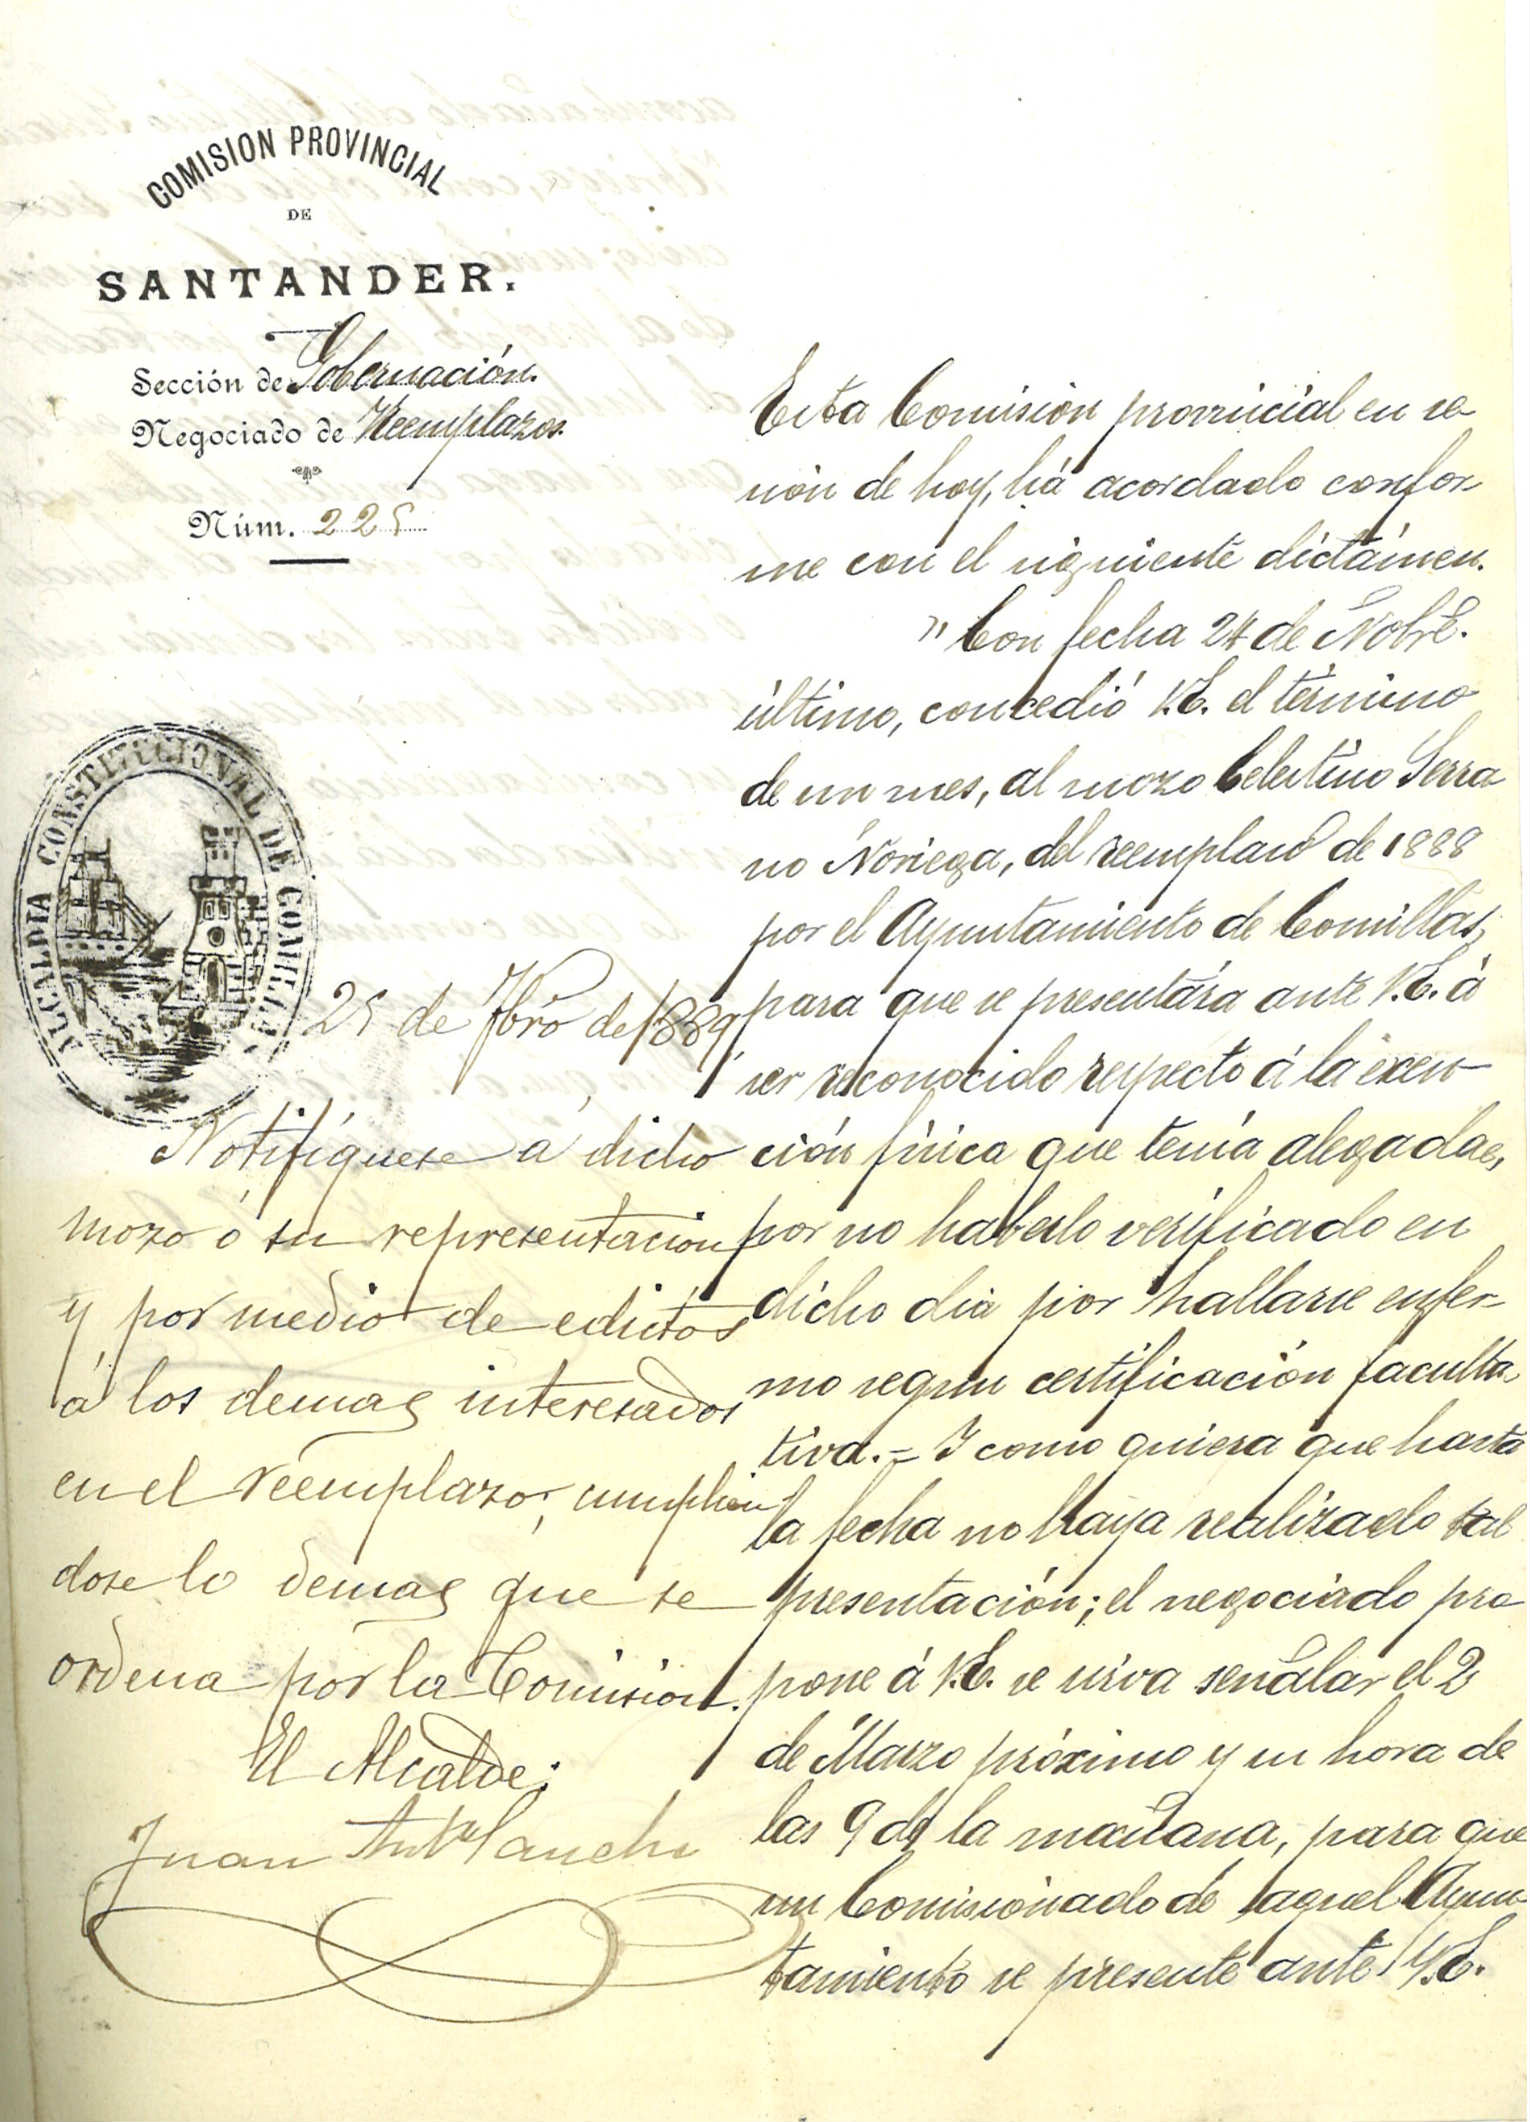 COMISION PROVINCIAL
DE
SANTANDER.
Sección de Gobernación.
Negociado de Reemplazos.
Núm. 225
Esta Comisión provincial en se-
sión de hoy, há acordado confor-
me con el siguiente dictámen.
" Con fecha 24 de Nobre.
último, concedió V.E. el término
de un mes, al mozo Celestino Serra-
no Noriega, del reemplazo de 1888
por el Ayuntamiento de Comillas,
para que se presentára ante V.E. á
ser reconocido respecto á la exen-
ción física que tenía alegada,
por no haberlo verificado en
dicho dia por hallarse enfer-
mo segun certificación faculta-
tiva.= Y como quiera que hasta
la fecha no haya realizado tal
presentación; el negociado pro
pone á V.E. se sirva señalar el 2
de Marzo próximo y su hora de
las 9 de la mañana, para que
un Comisionado de aquel Ayun-
tamiento se presente ante V.E.
ALCALDIA CONSTITUCIONAL DE COMILLAS
25 de Fbro de 1889
Notifíquese a dicho
mozo ó su representacion
y por medio de edictos
á los demas interesados
en el reemplazo, cumplien
dose lo demas que se
ordena por la Comision.
El Alcalde:
Juan Anto Sanche